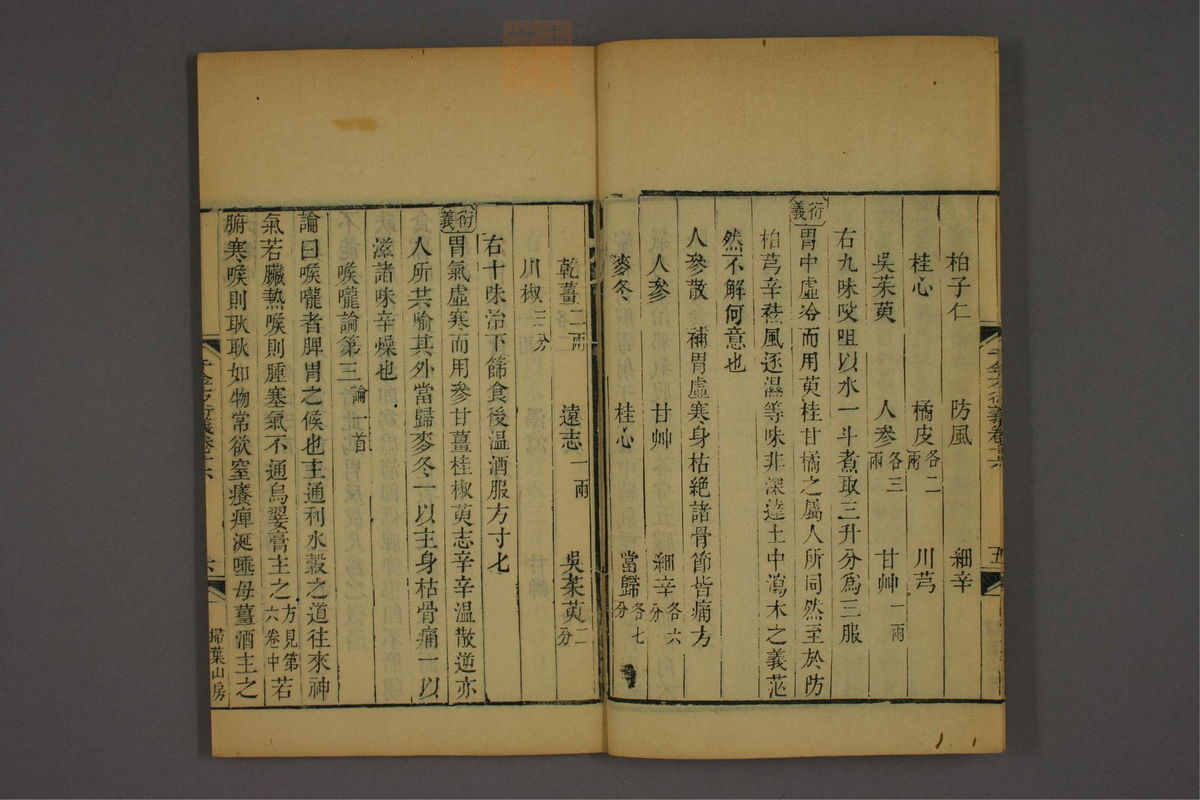 柏子仁 防風 細辛
桂心 橘皮各二兩 川芎
吳茱萸 人參各三兩 甘艸一兩
右九味㕮咀以水一斗煮取三升分爲三服
衍義
胃中虛冷而用萸桂甘橘之屬人所同然至於防
柏芎辛祛風逐濕等味非深達土中瀉木之義茫
然不解何意也
人參散 補胃虛寒身枯絶諸骨節皆痛方
人參 甘艸 細辛各六分
麥冬 桂心 當歸各七分
千金方衍義卷十六 五
乾薑二兩 遠志一兩 吳茱萸二分
川椒三分
右十味治下篩食後温酒服方寸匕
衍義
胃氣虛寒而用參甘薑桂椒萸志辛辛温散逆亦
人所共喻其外當歸麥冬一以主身枯骨痛一以
滋諸味辛燥也
喉嚨論第三 論一首
論曰喉嚨者脾胃之候也主通利水糓之道往來神
氣若臟熱喉則腫塞氣不通烏翣膏主之方見第六卷中若
腑寒喉則耿耿如物常欲窒癢痺涎唾母薑酒主之
千金方衍義卷十六 六 掃葉山房